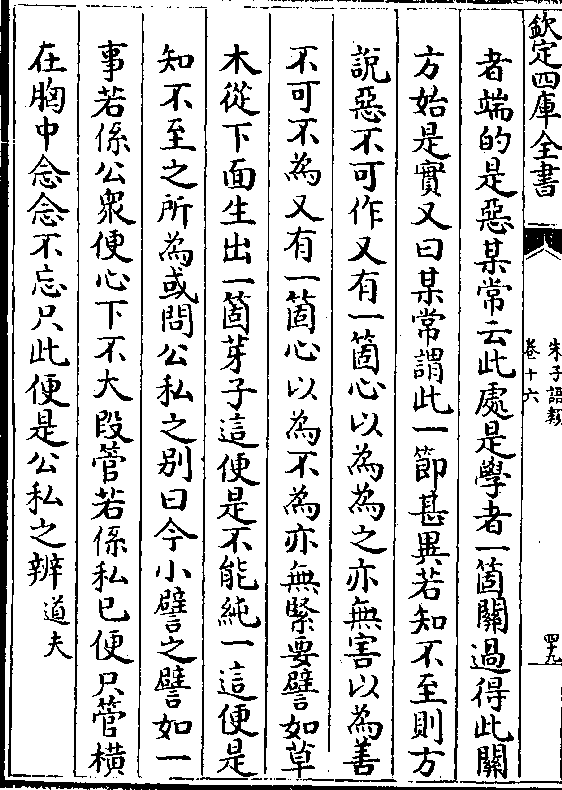 欽定四庫全書
朱子語類
卷十六
四十九
者端的是惡某常云此處是學者一箇關過得此關
方始是實又曰某常謂此一節甚異若知不至則方
說惡不可作又有一箇心以為為之亦無害以為善
不可不為又有一箇心以為不為亦無緊要譬如草
木從下面生出一箇芽子這便是不能純一這便是
知不至之所為或問公私之别曰今小譬之譬如一
事若係公衆便心下不大段管若係私已便只管橫
在胸中念念不忘只此便是公私之辨道夫